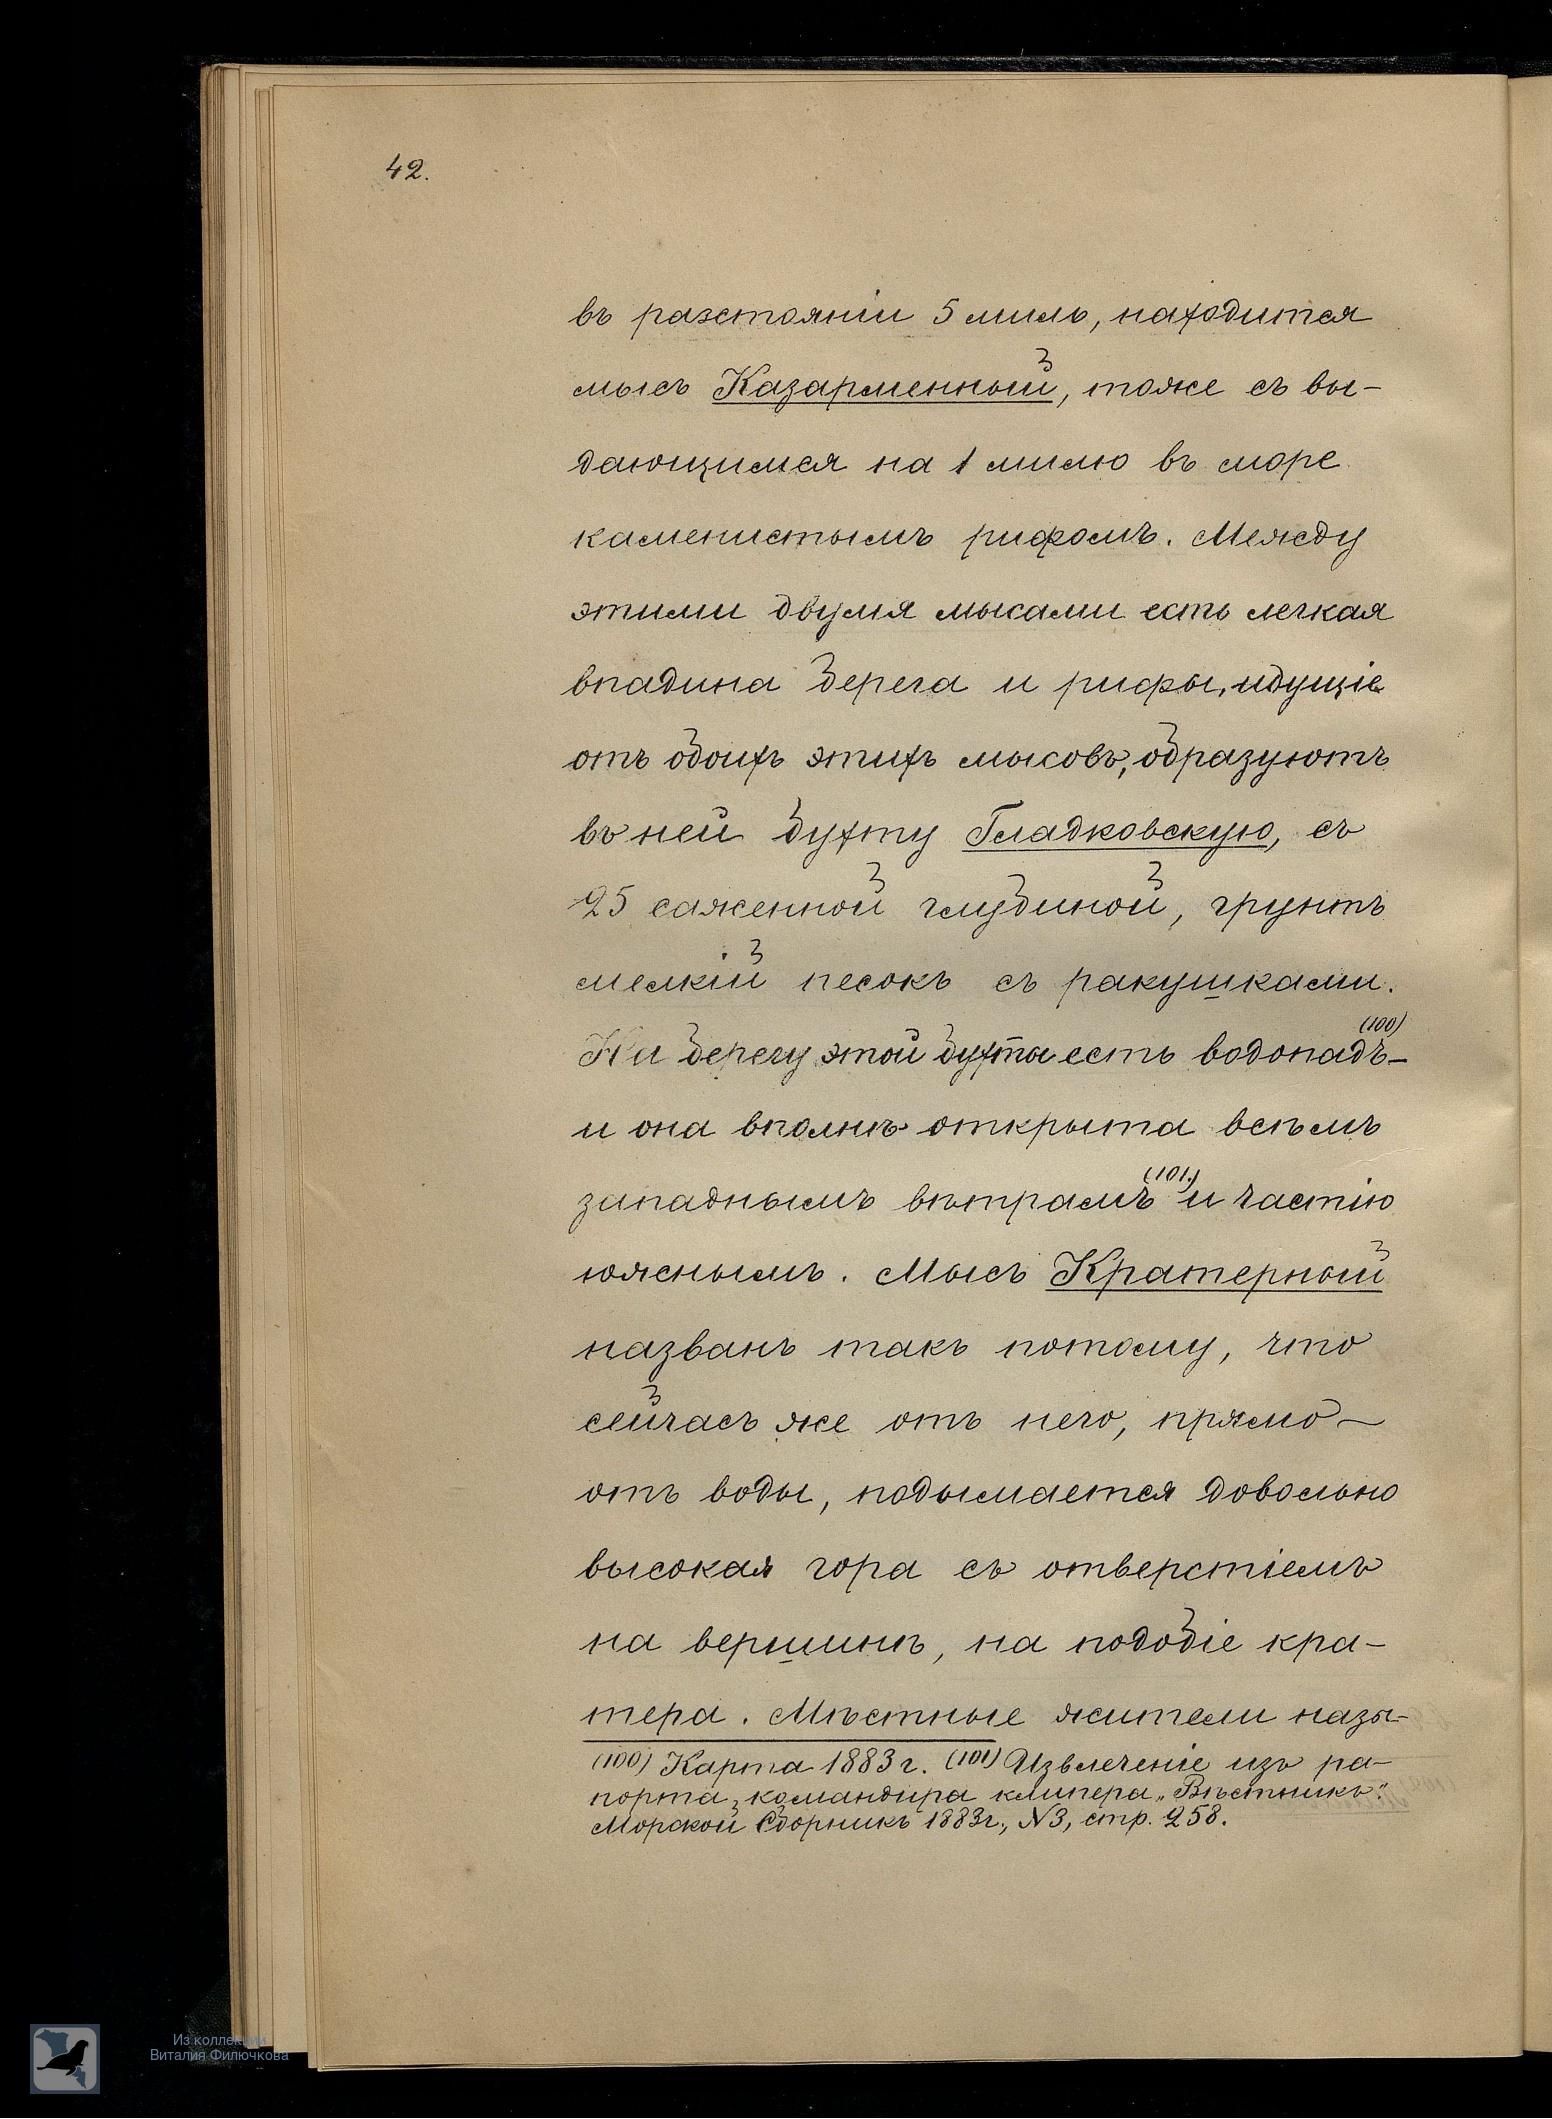 42.
въ разстояніи 5 миль, находится
мысъ Казарменный, тоже съ вы-
дающимся на 1 милю въ море
каменистымъ рифомъ. Между
этими двумя мысами есть легкая
впадина берега и рифы, идущіе
отъ обоихъ этихъ мысовъ, образуютъ
въ ней бухту Гладковскую, съ
25 саженной глубиной, грунтъ
мелкій песокъ съ ракушками.
На берегу этой бухты есть водопадъ (100) –
и она вполнѣ открыта всѣмъ
западнымъ вѣтрамъ (101) и частію
южнымъ. Мысъ Кратерный
названъ такъ потому, что
сейчасъ же отъ него, прямо –
отъ воды, подымается довольно
высокая гора съ отверстіемъ
на вершинѣ, на подобіе кра-
тера. Мѣстные жители назы-
(100) Карта 1883 г. (101) Извлеченіе изъ ра-
порта командира клипера „Вѣстникъ“.
Морской Сборникъ 1883 г., N 3, стр. 258.
Из коллекции
Виталия Филючкова